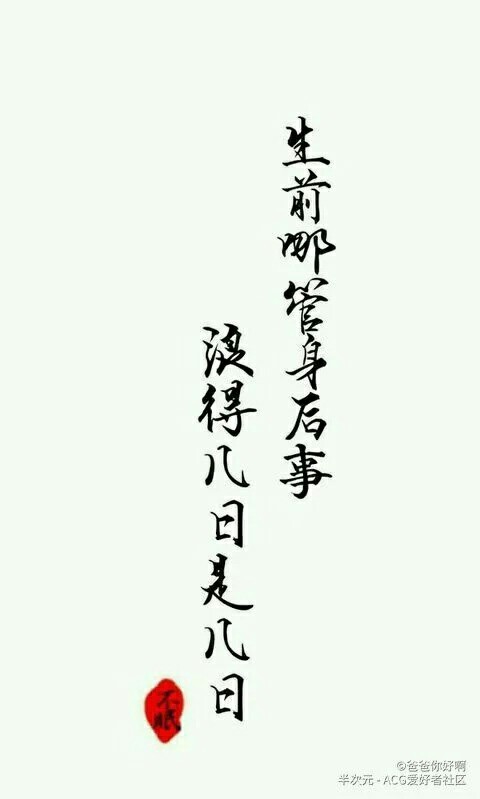 生前哪管身后事
浪得几日是几日
不眠
©爸爸你好啊
半次元 - ACG爱好者社区